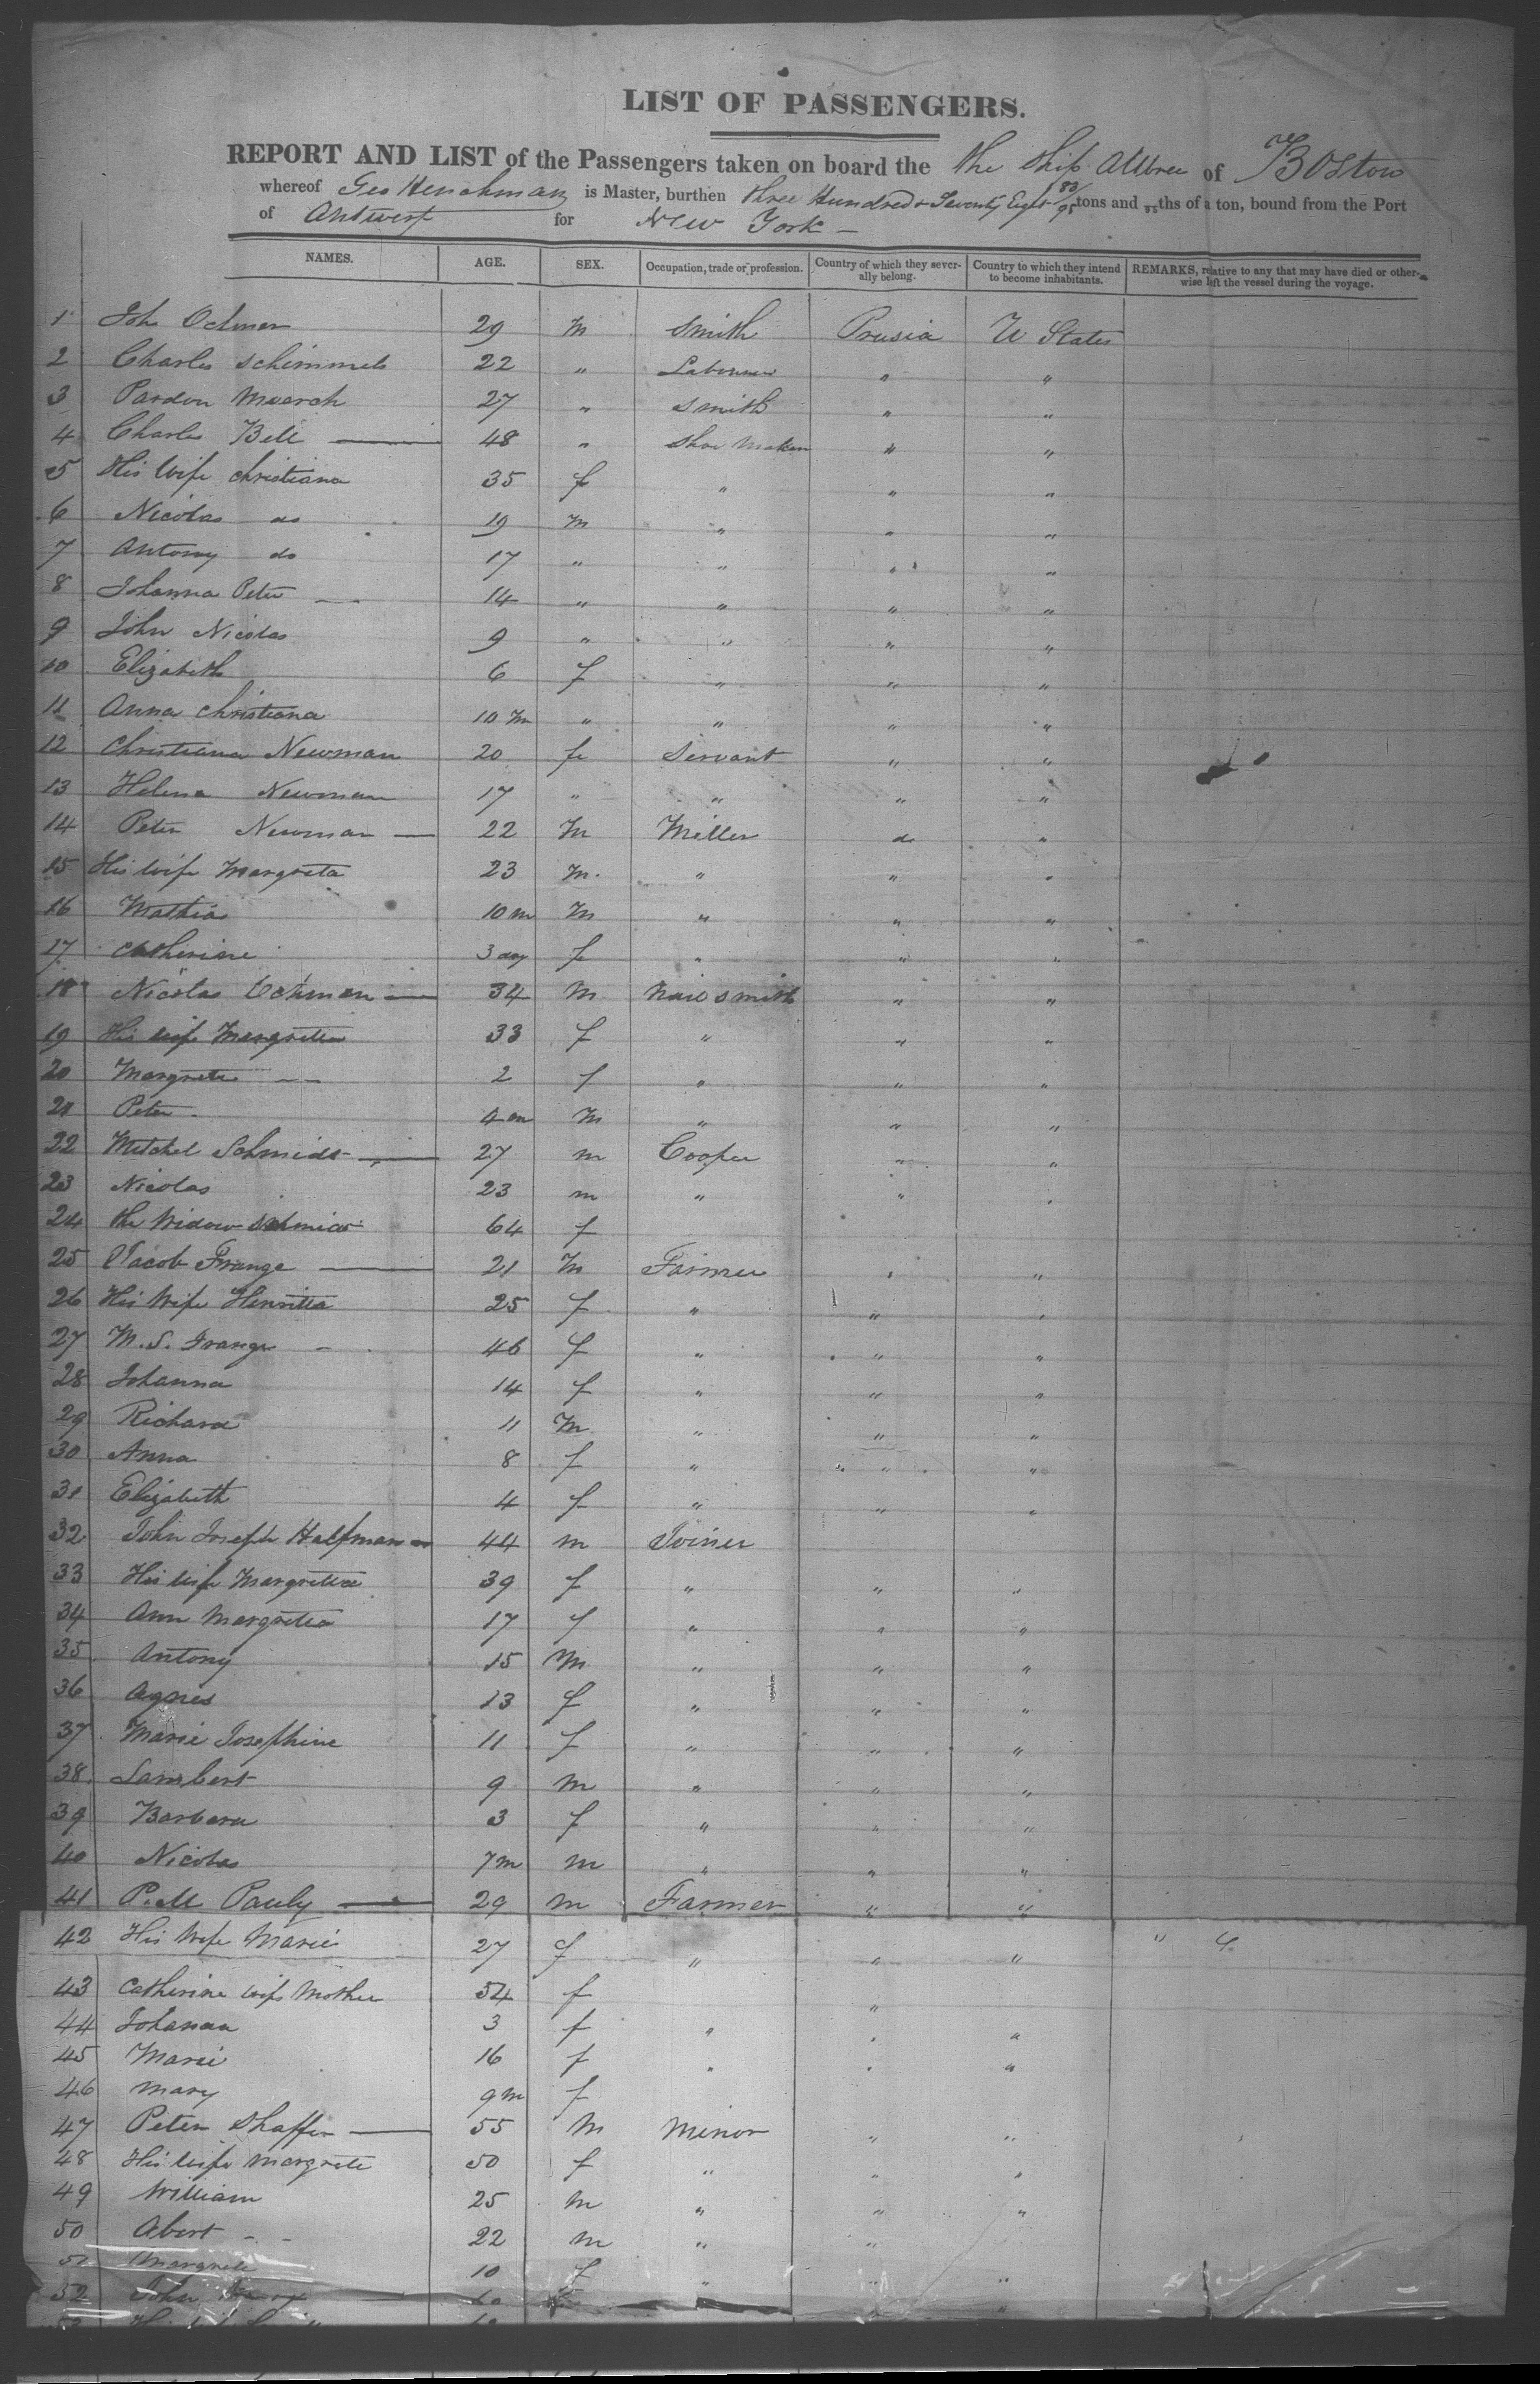 LIST OF PASSENGERS.
REPORT AND LIST of the Passengers taken on board the the Ship of Boston
whereof Geo Henchman is Master, burthen three Hundred & Seventy Eight 83/95 tons and ths of a ton, bound from the Port
of Antwerp for New York
NAMES. AGE. SEX. Occupation, trade or profession. Country of which they severally belong. Country to which they intend to become inhabitants. REMARKS, relative to any that may have died or otherwise left the vessel during the voyage.
1 29 m Smith Prusia U States
2 Charles Schimmels 22 " " "
3 27 " Smith " "
4 Charles Bell 48 " Shoe Maker " "
5 His Wife Christiana 35 f " " "
6 Nicolas do 19 m " " "
7 Antony do 17 " " " "
8 Johanna Peter 14 " " " "
9 John Nicolas 9 " " " "
10 Elizabeth 6 f " " "
11 Anna Christiana 10 m " " " "
12 Christiana Newman 20 fe Servant " "
13 Helena Newman 17 " " " "
14 Peter Newman 22 m Miller do "
15 His Wife Margreta 23 m. " " "
16 Mathias 10 m m " " "
17 Catherine 3 day f " " "
18 Nicolas 34 m Nail Smith " "
19 His wife Margretta 33 f " " "
20 Margrete 2 f " " "
21 Peter 4 m m " " "
22 Mitchel Schmidt 27 m Cooper " "
23 Nicolas 23 m " " "
24 the Widow Schmidt 64 f
25 Jacob Frange 21 m Farmer " "
26 His Wife Henritta 25 f " " "
27 M. S. Frange 46 f " " "
28 Johanna 14 f " " "
29 Richard 11 m " " "
30 Anna 8 f " " "
31 Elizabeth 4 f " " "
32 John Joseph Halfman 44 m Joiner
33 His Wife Margretta 39 f " " "
34 Ann Margretta 17 f " " "
35 Antony 15 m " " "
36 Agnes 13 f " " "
37 Marie Josephine 11 f " " "
38 Lambert 9 m " " "
39 Barbara 3 f " " "
40 Nicolas 7 m m " " "
41 P. M Pauly 29 m Farmer " "
42 His Wife Marie 27 f " " "
43 Catherine wifes Mother 54 f "
44 Johanna 3 f " " "
45 Marie 16 f " " "
46 Mary 9 m f
47 Peter Shaffer 55 m Minor " "
48 His Wife Margrete 50 f " " "
49 William 25 m " " "
50 Abert 22 m " "
51 Margrete 10 f " " "
52 John